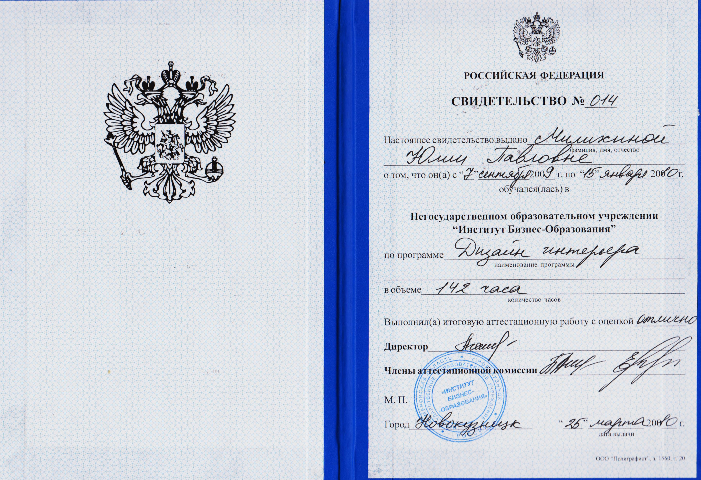 РОССИЙСКАЯ ФЕДЕРАЦИЯ
СВИДЕТЕЛЬСТВО № 014
Настоящее свидетельство выдано
фамилия, имя, отчество
Юлии Павловне
о том, что он(а) с "7" сентября 2009 г. по "15" января 2010 г.
обучался(лась) в
Негосударственном образовательном учреждении
“Институт Бизнес-Образования”
по программе Дизайн интерьера
наименование программы
в объеме 142 часа
количество часов
Выполнил(а) итоговую аттестационную работу с оценкой отлично
Директор
Члены аттестационной комиссии
"ИНСТИТУТ
БИЗНЕС-
ОБРАЗОВАНИЯ"
М. П.
Город Новокузнецк "25" марта 2010 г.
дата выдачи